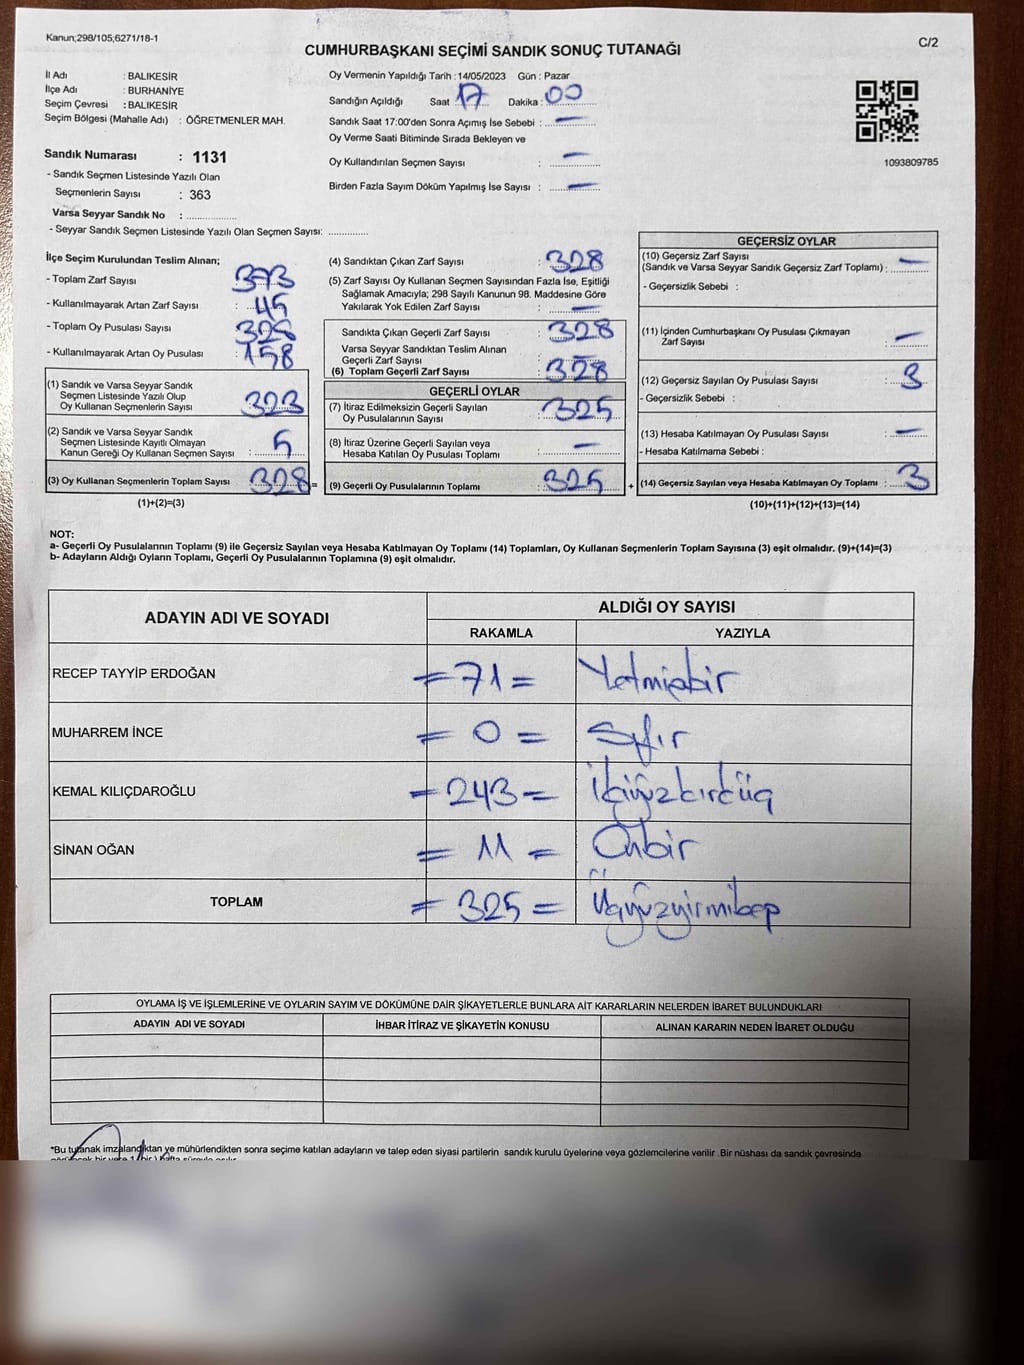 Kanun;298/105;6271/18-1
C/2
CUMHURBAŞKANI SEÇİMİ SANDIK SONUÇ TUTANAĞI
İl Adı : BALIKESİR
İlçe Adı : BURHANİYE
Seçim Çevresi : BALIKESİR
Seçim Bölgesi (Mahalle Adı) : ÖĞRETMENLER MAH.
Sandık Numarası : 1131
- Sandık Seçmen Listesinde Yazılı Olan
Seçmenlerin Sayısı : 363
Varsa Seyyar Sandık No : ................
- Seyyar Sandık Seçmen Listesinde Yazılı Olan Seçmen Sayısı: .............
Oy Vermenin Yapıldığı Tarih : 14/05/2023 Gün : Pazar
Sandığın Açıldığı Saat 17 Dakika : 00
Sandık Saat 17:00'den Sonra Açımış İse Sebebi : —
Oy Verme Saati Bitiminde Sırada Bekleyen ve
Oy Kullandırılan Seçmen Sayısı : —
Birden Fazla Sayım Döküm Yapılmış İse Sayısı : —
1093809785
İlçe Seçim Kurulundan Teslim Alınan;
- Toplam Zarf Sayısı : 373
- Kullanılmayarak Artan Zarf Sayısı : 45
- Toplam Oy Pusulası Sayısı
- Kullanılmayarak Artan Oy Pusulası : 158
(1) Sandık ve Varsa Seyyar Sandık
Seçmen Listesinde Yazılı Olup
Oy Kullanan Seçmenlerin Sayısı : 323
(2) Sandık ve Varsa Seyyar Sandık
Seçmen Listesinde Kayıtlı Olmayan
Kanun Gereği Oy Kullanan Seçmen Sayısı : 5
(3) Oy Kullanan Seçmenlerin Toplam Sayısı : 328 =
(1)+(2)=(3)
(4) Sandıktan Çıkan Zarf Sayısı : 328
(5) Zarf Sayısı Oy Kullanan Seçmen Sayısından Fazla İse, Eşitliği
Sağlamak Amacıyla; 298 Sayılı Kanunun 98. Maddesine Göre
Yakılarak Yok Edilen Zarf Sayısı : —
Sandıkta Çıkan Geçerli Zarf Sayısı : 328
Varsa Seyyar Sandıktan Teslim Alınan
Geçerli Zarf Sayısı : —
(6) Toplam Geçerli Zarf Sayısı : 328
GEÇERLİ OYLAR
(7) İtiraz Edilmeksizin Geçerli Sayılan
Oy Pusulalarının Sayısı : 325
(8) İtiraz Üzerine Geçerli Sayılan veya
Hesaba Katılan Oy Pusulası Toplamı : —
(9) Geçerli Oy Pusulalarının Toplamı : 325 +
GEÇERSİZ OYLAR
(10) Geçersiz Zarf Sayısı
(Sandık ve Varsa Seyyar Sandık Geçersiz Zarf Toplamı) : —
- Geçersizlik Sebebi :
(11) İçinden Cumhurbaşkanı Oy Pusulası Çıkmayan
Zarf Sayısı : —
(12) Geçersiz Sayılan Oy Pusulası Sayısı : 3
- Geçersizlik Sebebi :
(13) Hesaba Katılmayan Oy Pusulası Sayısı : —
- Hesaba Katılmama Sebebi :
(14) Geçersiz Sayılan veya Hesaba Katılmayan Oy Toplamı : 3
(10)+(11)+(12)+(13)=(14)
NOT:
a- Geçerli Oy Pusulalarının Toplamı (9) ile Geçersiz Sayılan veya Hesaba Katılmayan Oy Toplamı (14) Toplamları, Oy Kullanan Seçmenlerin Toplam Sayısına (3) eşit olmalıdır. (9)+(14)=(3)
b- Adayların Aldığı Oyların Toplamı, Geçerli Oy Pusulalarının Toplamına (9) eşit olmalıdır.
ADAYIN ADI VE SOYADI
ALDIĞI OY SAYISI
RAKAMLA YAZIYLA
RECEP TAYYİP ERDOĞAN = 71 = Yetmişbir
MUHARREM İNCE = 0 = Sıfır
KEMAL KILIÇDAROĞLU = 243 = İkiyüzkırküç
SİNAN OĞAN = 11 = Onbir
TOPLAM = 325 = Üçyüzyirmibeş
OYLAMA İŞ VE İŞLEMLERİNE VE OYLARIN SAYIM VE DÖKÜMÜNE DAİR ŞİKAYETLERLE BUNLARA AİT KARARLARIN NELERDEN İBARET BULUNDUKLARI
ADAYIN ADI VE SOYADI İHBAR İTİRAZ VE ŞİKAYETİN KONUSU ALINAN KARARIN NEDEN İBARET OLDUĞU
*Bu tutanak imzalandıktan ve mühürlendikten sonra seçime katılan adayların ve talep eden siyasi partilerin sandık kurulu üyelerine veya gözlemcilerine verilir .Bir nüshası da sandık çevresinde